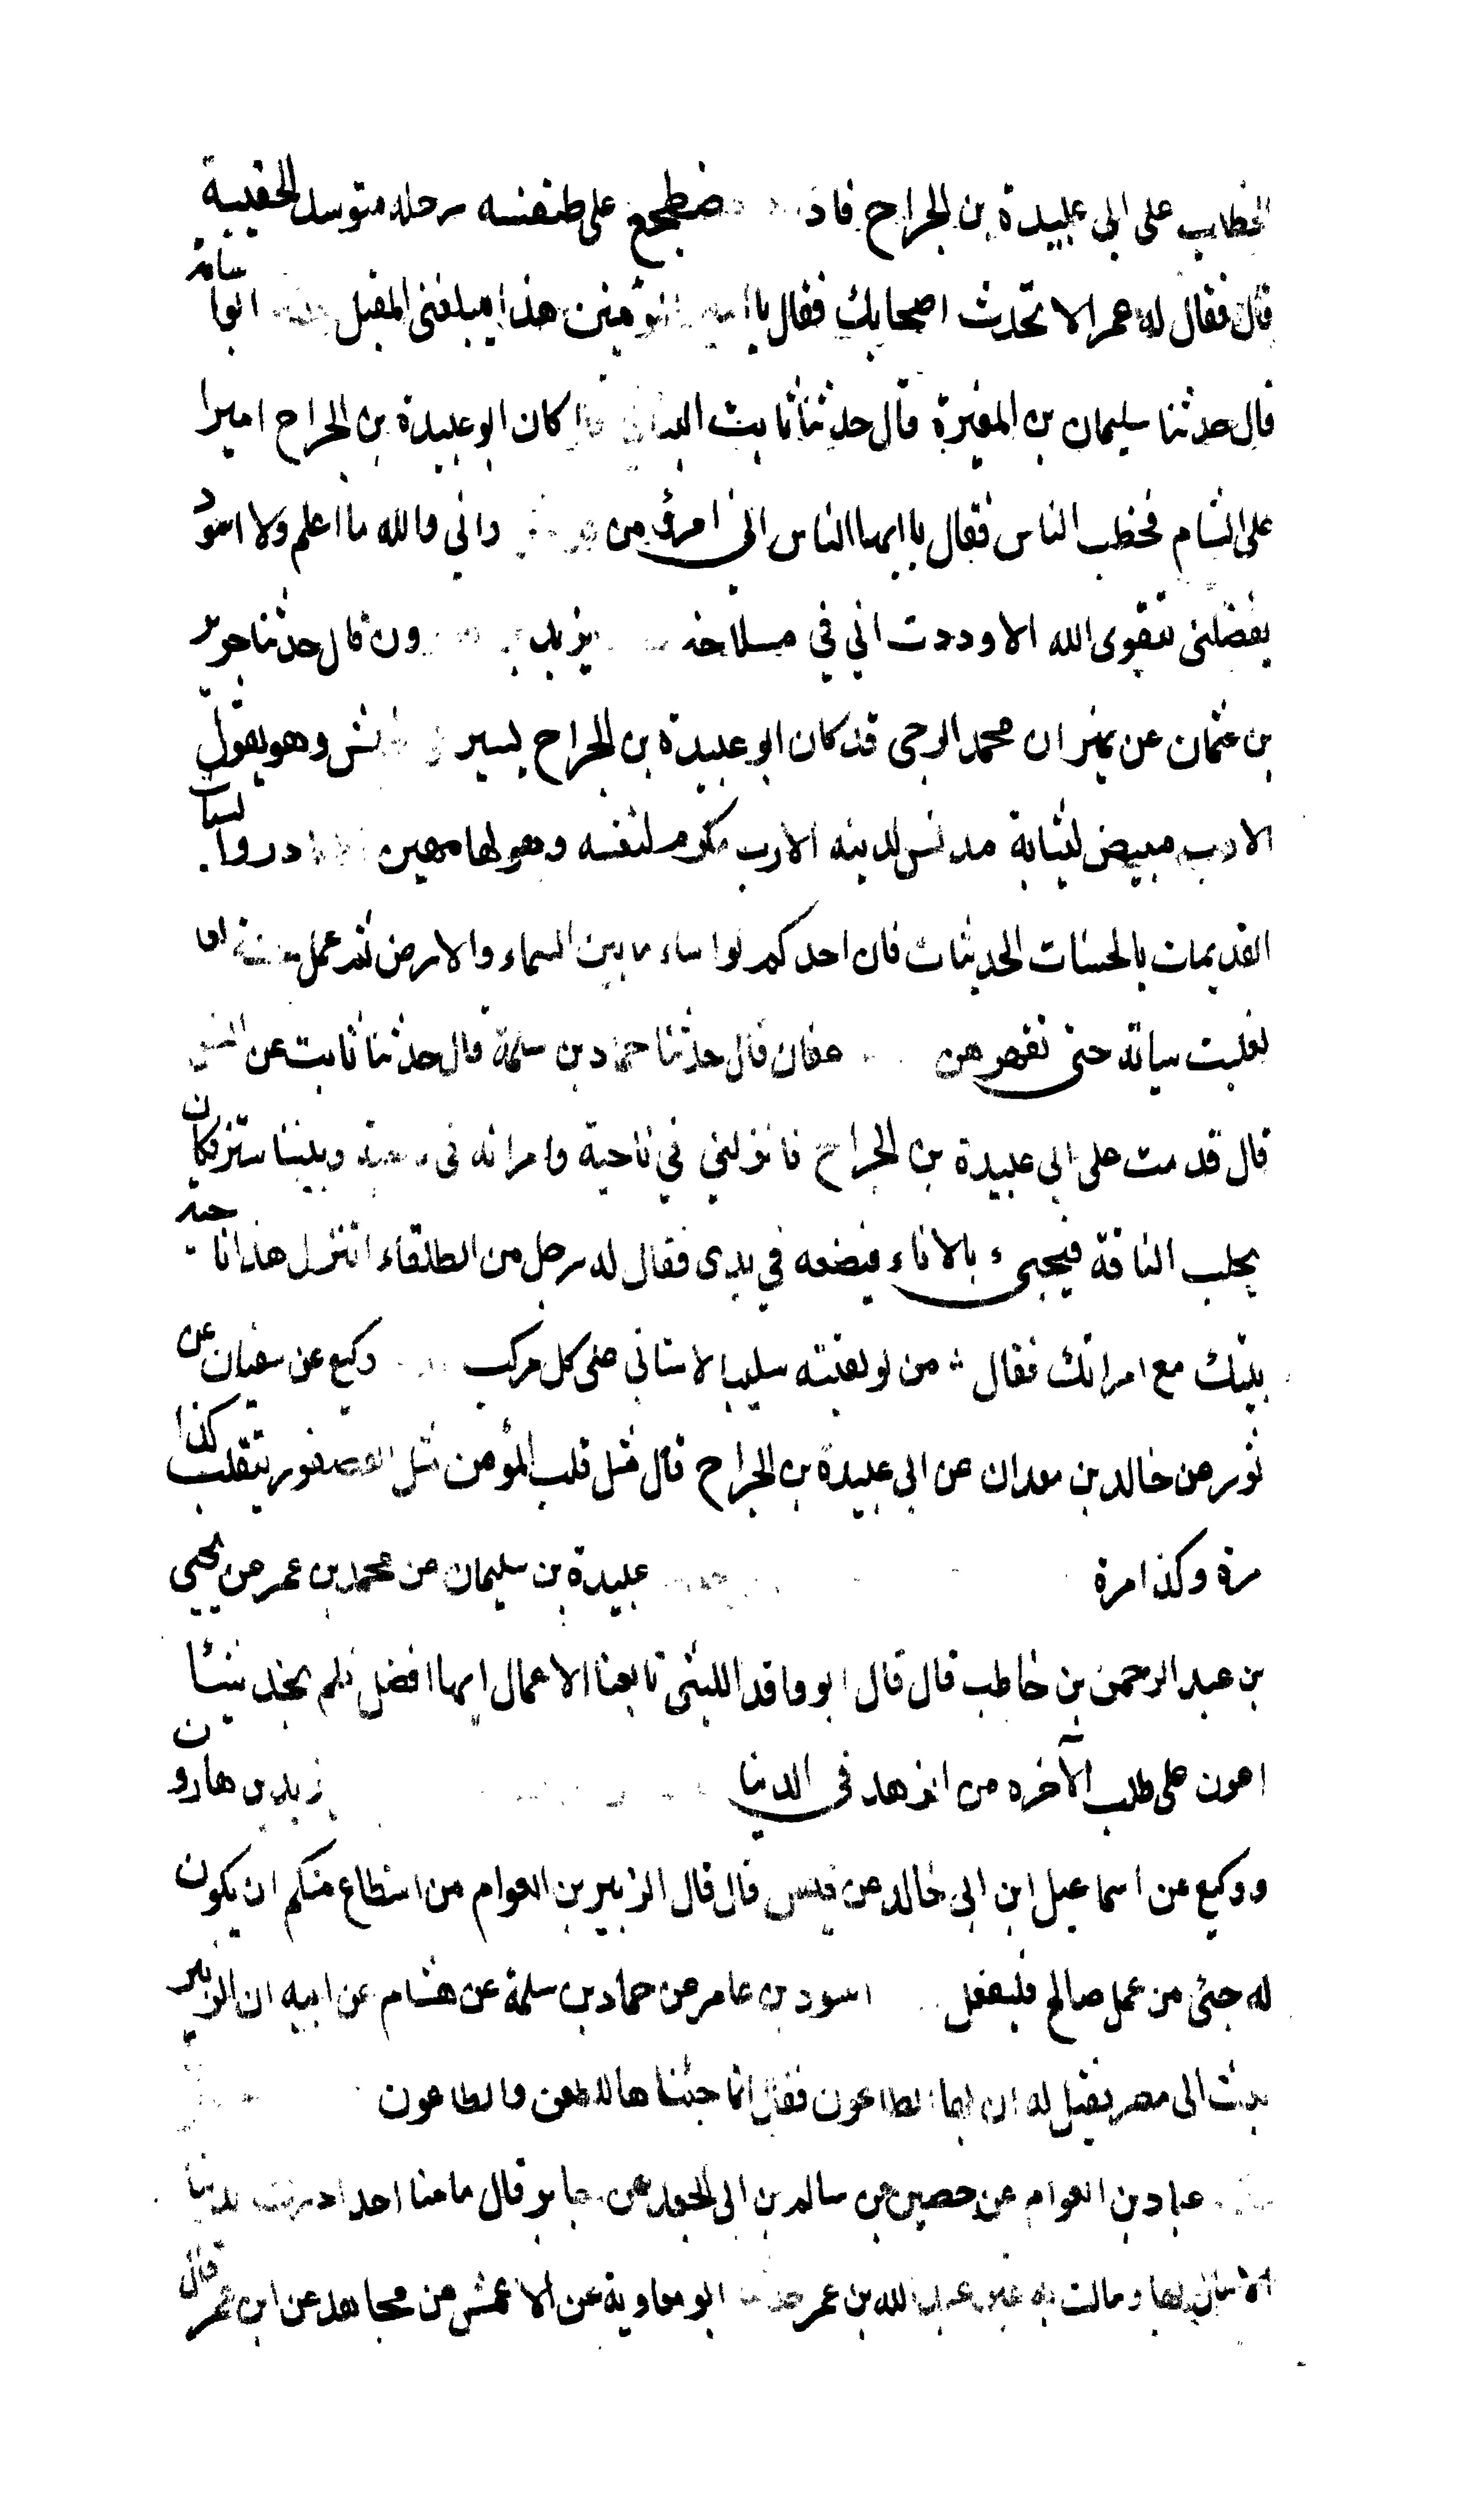 الخطاب على ابي عبيدة بن الجراح فاذ ضطجع على طنفسه رحله متوسد الحقيبة
قال فقال له عمر الا تحدث اصحابك فقال يا امير المؤمنين هذا يبلغني المقيل
قال حدثنا سليمان بن المغيرة قال حدثنا ثابت البناني قال كان ابو عبيدة بن الجراح اميرا
على الشام فخطب الناس فقال يا ايها الناس اني امرؤ من واني والله ما اعلم ولا اسود
يفضلني بتقوى الله الا وددت اني في مسلاخه يزيد ون قال حدثنا جرير
بن عثمان عن نمران محمد الرحبي قد كان ابو عبيدة بن الجراح يسير وهو يقول
الا رب مبيض لثيابة مدنس لدينه الا رب مكرم لنفسه وهو لها مهين ادروا السيات
القديمات بالحسنات الحديثات فان احدكم لو اساء ما بين السماء والارض ثم عمل حسنة
لغلبت سياته حتى تقهرهن عفان قال حدثنا حماد بن سلمة قال حدثنا ثابت عن
قال قدمت على ابي عبيدة بن الجراح فانزلني في ناحية وامراته في ناحية وبيننا ستر فكان
يحلب الناقة فيجيء بالاناء فيضعه في يدي فقال له رجل من الطلقاء اتنزل هذا ناحية
بيتك مع امراتك فقال من لو لقيته سليبا لاستاني على كل مركب وكيع عن سفيان عن
ثور عن خالد بن معدان عن ابي عبيدة بن الجراح قال مثل قلب المؤمن مثل العصفور يتقلب كذا
مرة وكذا مرة عبيدة بن سليمان عن محمد بن عمر عن يحيى
بن عبد الرحمن بن خاطب قال قال ابو واقد الليثي تابعنا الاعمال ايها افضل فلم نجد شيئا
اعون على طلب الآخره من الزهد في الدنيا يزيد بن هارون
ووكيع عن اسماعيل ابن ابي خالد عن قيس قال قال الزبير بن العوام من استطاع منكم ان يكون
له جئ من عمل صالح فليفعل اسود بن عامر عن حماد بن سلمة عن هشام عن ابيه ان الزبير
بعث الى مصر فقيل له ان بها الطاعون فقال انما جئنا ها للطعن والطاعون
عباد بن العوام عن حصين عن سالم بن ابي الجعد عن جابر قال ما منا احد ادركت الدنيا
الا مال بها ومالت به غير عبد الله بن عمر حدثنا ابو معاوية عن الاعمش عن مجاهد عن ابن عمر قال